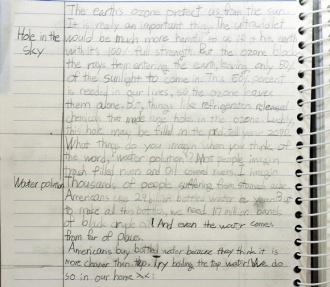 The earth's ozone protect us from the sun.
It is really an important thing. The ultraviolet
Hole in the sky
would be much more harmful to us if it hits earth
with it's 100% full strength. But the ozone block
the rays from entering the earth, leaving only 50%
of the sunlight to come in. This 50% percent
is needed in our lives, so the ozone leaves
them alone. But, things like refrigerators released
chemicals that made huge holes in the ozone. Luckily,
this hole may be filled in the
What things do you imagin when you think of
the word, "water pollution"? Most people imagin
trash filled rivers and oil covered rivers. I imagin
Water pollution
Thousands of people suffering from stomach ache.
Americans use 29 billion bottled water a
to make all this bottles, we need 17 million barrels
of black And even the water comes
from far of places.
Americans buy bottled water because they think it is
more cleaner than tap. Try boiling the tap water! We do
so in our home ><!